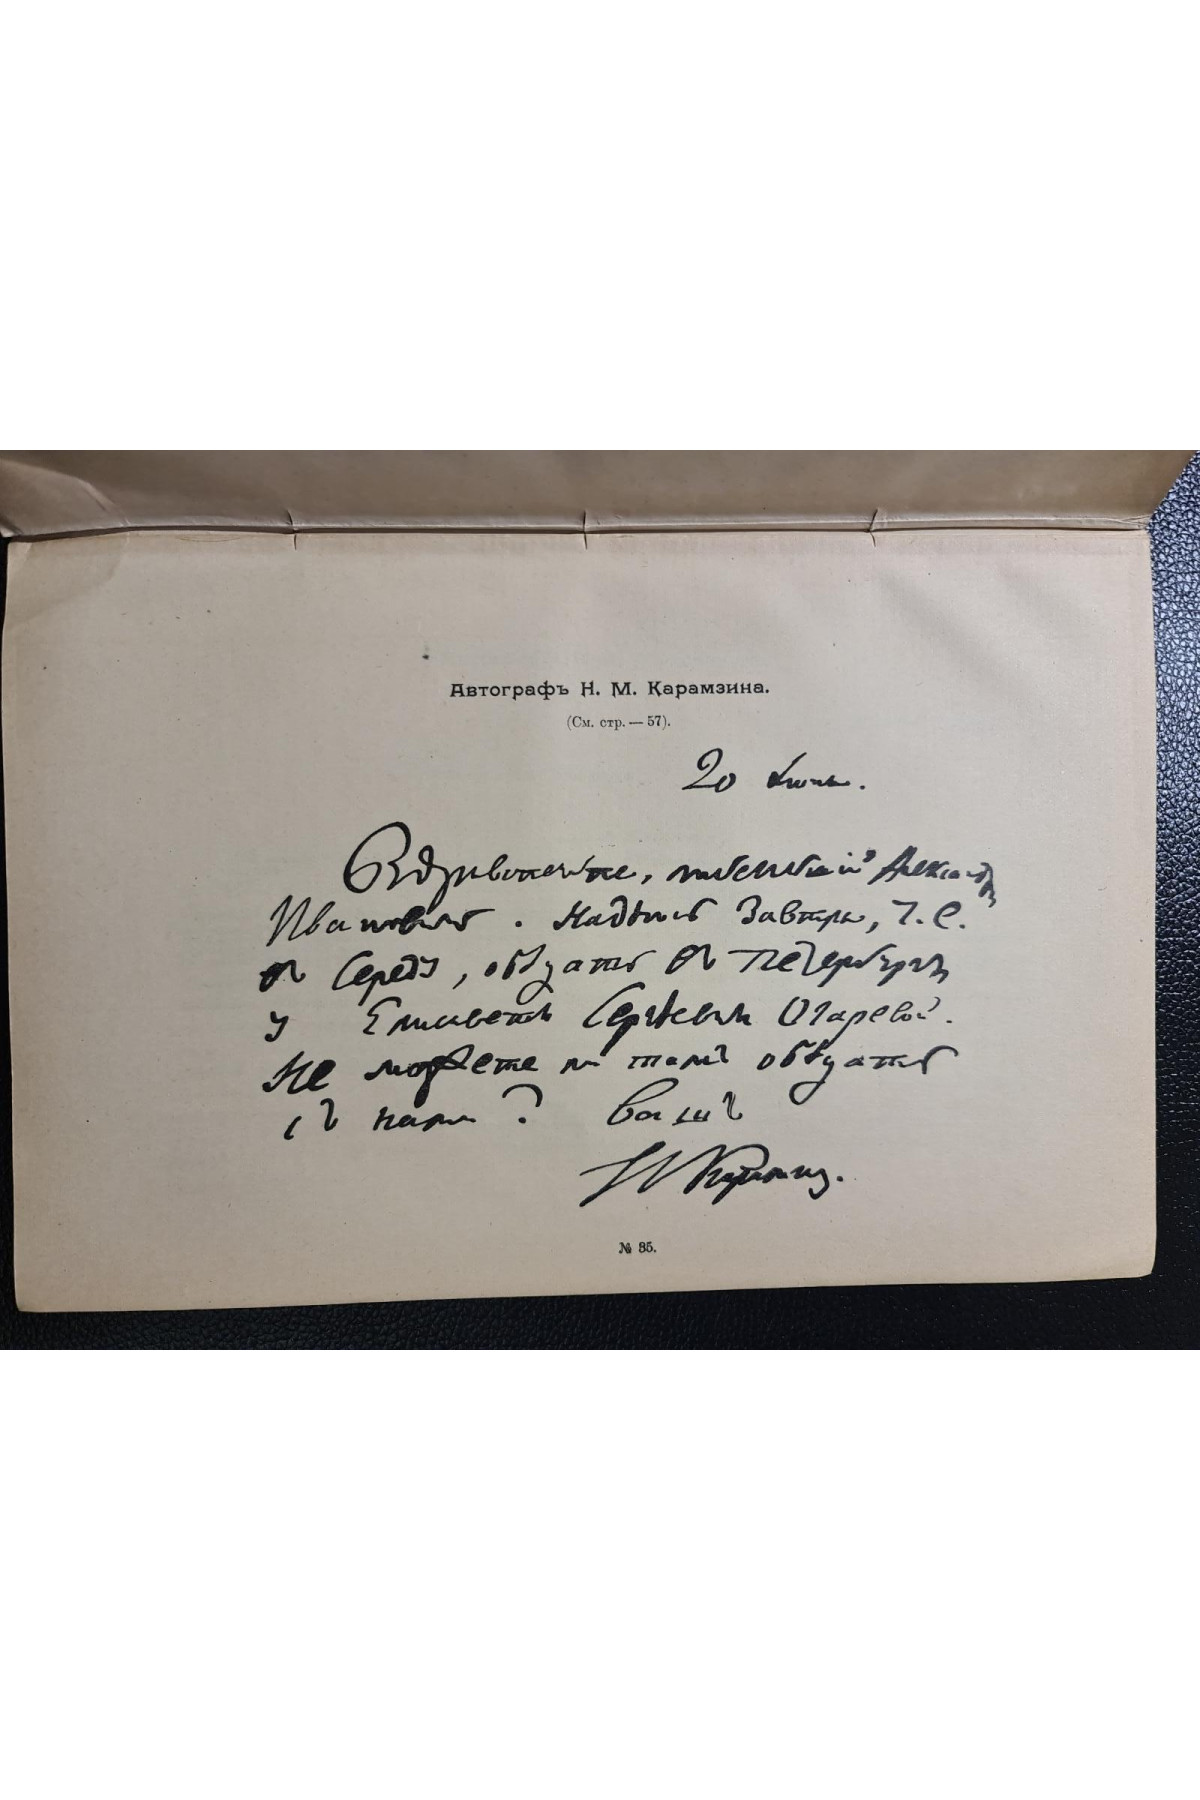 Автографъ Н. М. Карамзина.
(См. стр. — 57).
20 Іюня.
Здравствуйте, любезный Александръ
Ивановичь. Надѣюсь завтра, т. е.
въ Середу, обѣдать въ Петербургѣ
у Елисаветы Сергѣевны Огаревой.
Не можете ли тамъ обѣдать
съ нами? Вашъ
Н Карамзинъ.
№ 35.